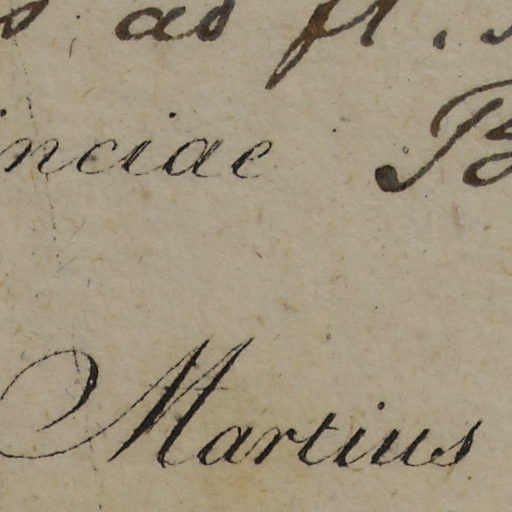 ad fl.
inciae
Martius